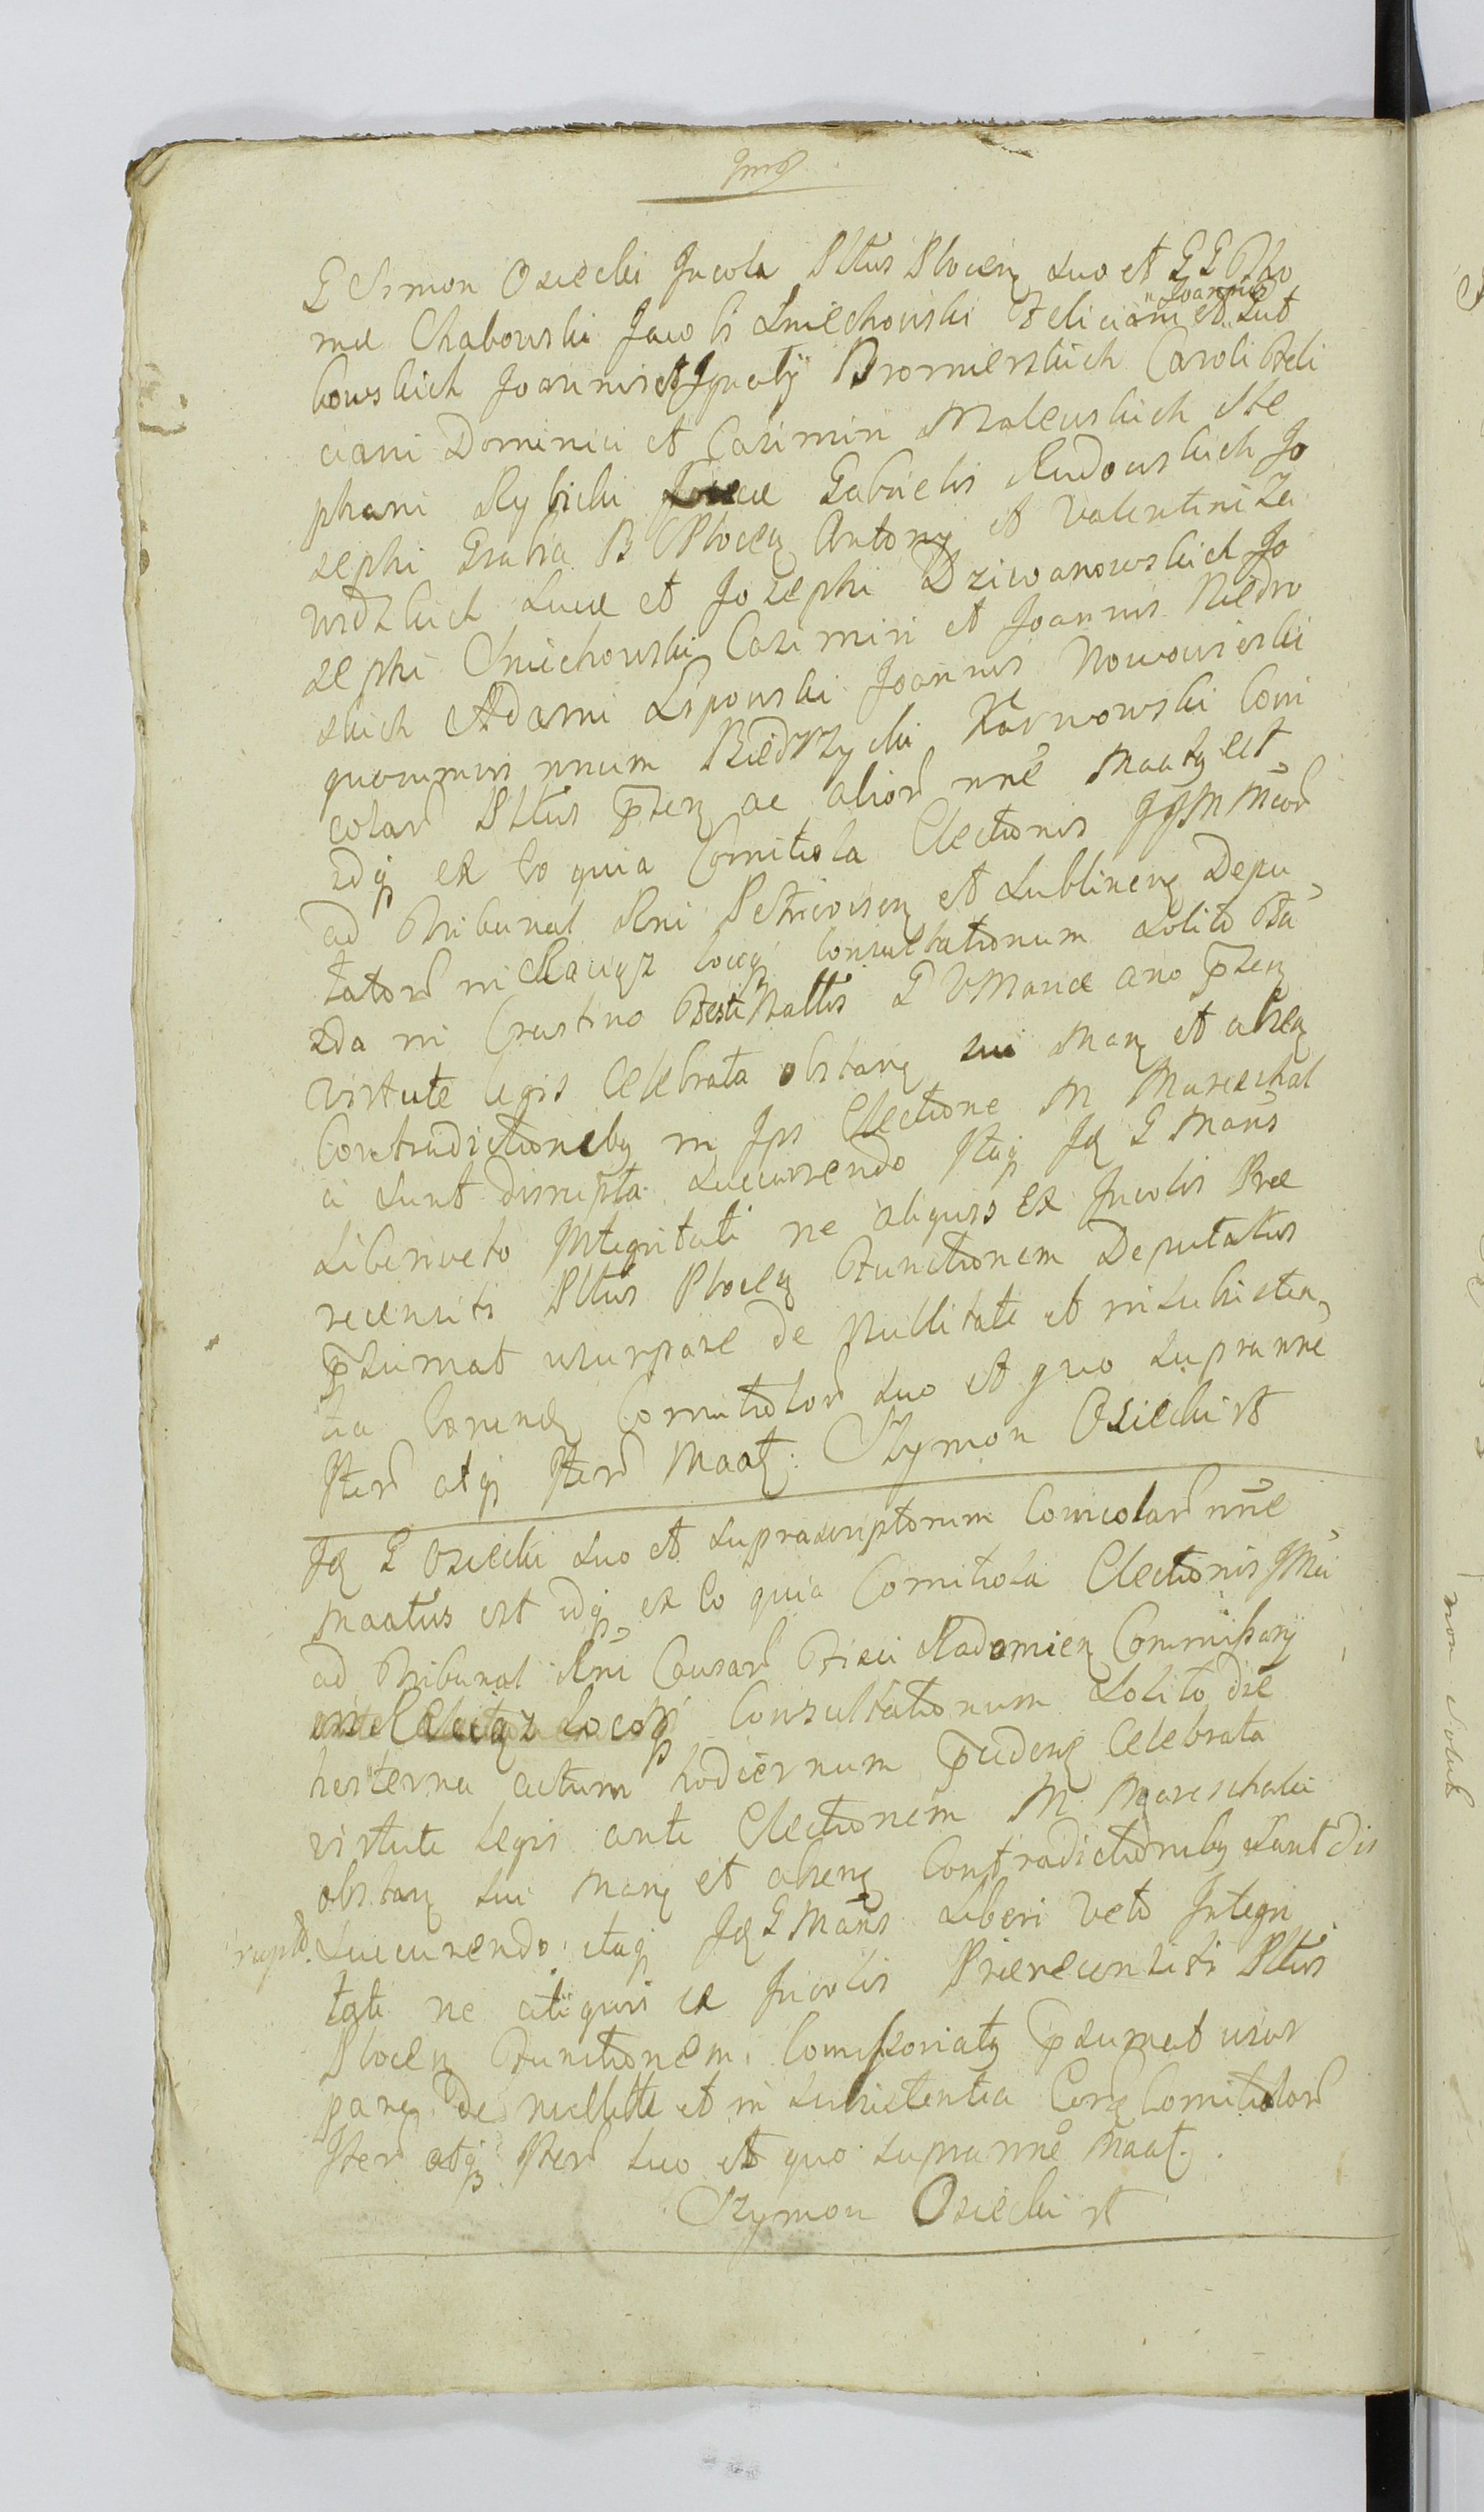 G Simon Osiecki Incola Pltus Plocen suo et GG Tho
mæ Chabowski Jacobi Sniechowski Feliciani et "Joannis" Lut
kowskich Joannis et Ignatij Bromierskich Caroli Feli
ciani Dominici et Casimiri Malewskich Ste
phani Rybicki Lucæ Gabrielis Rudowskich Jo
sephi Grabia B Plocen Antony et Valentini Za
widzkich Lucæ et Josephi Dziwanowskich Jo
sephi Sniechowski Casimiri et Joannis Niedro
skich Adami Lipowski Joannis Nowowieski
quorumvis unum Biedrzycki Karwowski Coin
colar Pltus psen ac alior nne Maatq est
idq ex eo quia Comitiola Electionis JJMMcor
ad Tribunal Rni Petricovien et Lublinen Depu
tator in Raciąż locoq Consultationum solito Fa
zda in Crastino Festi Nattis B V Mariæ ano psen
virtute legis Celebrata obstan sui Man et alien
Contradictionebq in Ips Electione M Mareschal
ci sunt disrupta succurendo Itaq Id G Mans
Liberiveto Integritati ne aliquis ex Incolis Præ
recensiti Pltus Plocen Functionem Deputatus
psumat usurpare de Nullitate et insubsisten
tia Eorund Comitiolor suo et quo supra nne
Iter atq Iter Maat. Szymon Osiecki
Id G Osiecki suo et suprascriptorum Coincolar nne
Maatus est idq ex eo quia Comitiola Electionis JMci
ad Tribunal Rni Causar Fisci Radomien Commissarij
in Raciąż Locoq Consultationum solito die
hesterna actum hodiernum pcedens Celebrata
virtute Legis ante Electionem M Mareschalci
obstan sui Man et alien Contradictionibq sunt dis
rupta Succurendo itaq Id G Mans Liberi Veto Integri
tati ne aliquis ex Incolis Prærecensiti Pltus
Plocen Functionem Comissoriatq psumat usur
pare De nullitte et in subsistentia Eorud Comitiolor
Iter atq Iter suo et quo supra nne Maat.
Szymon Osiecki